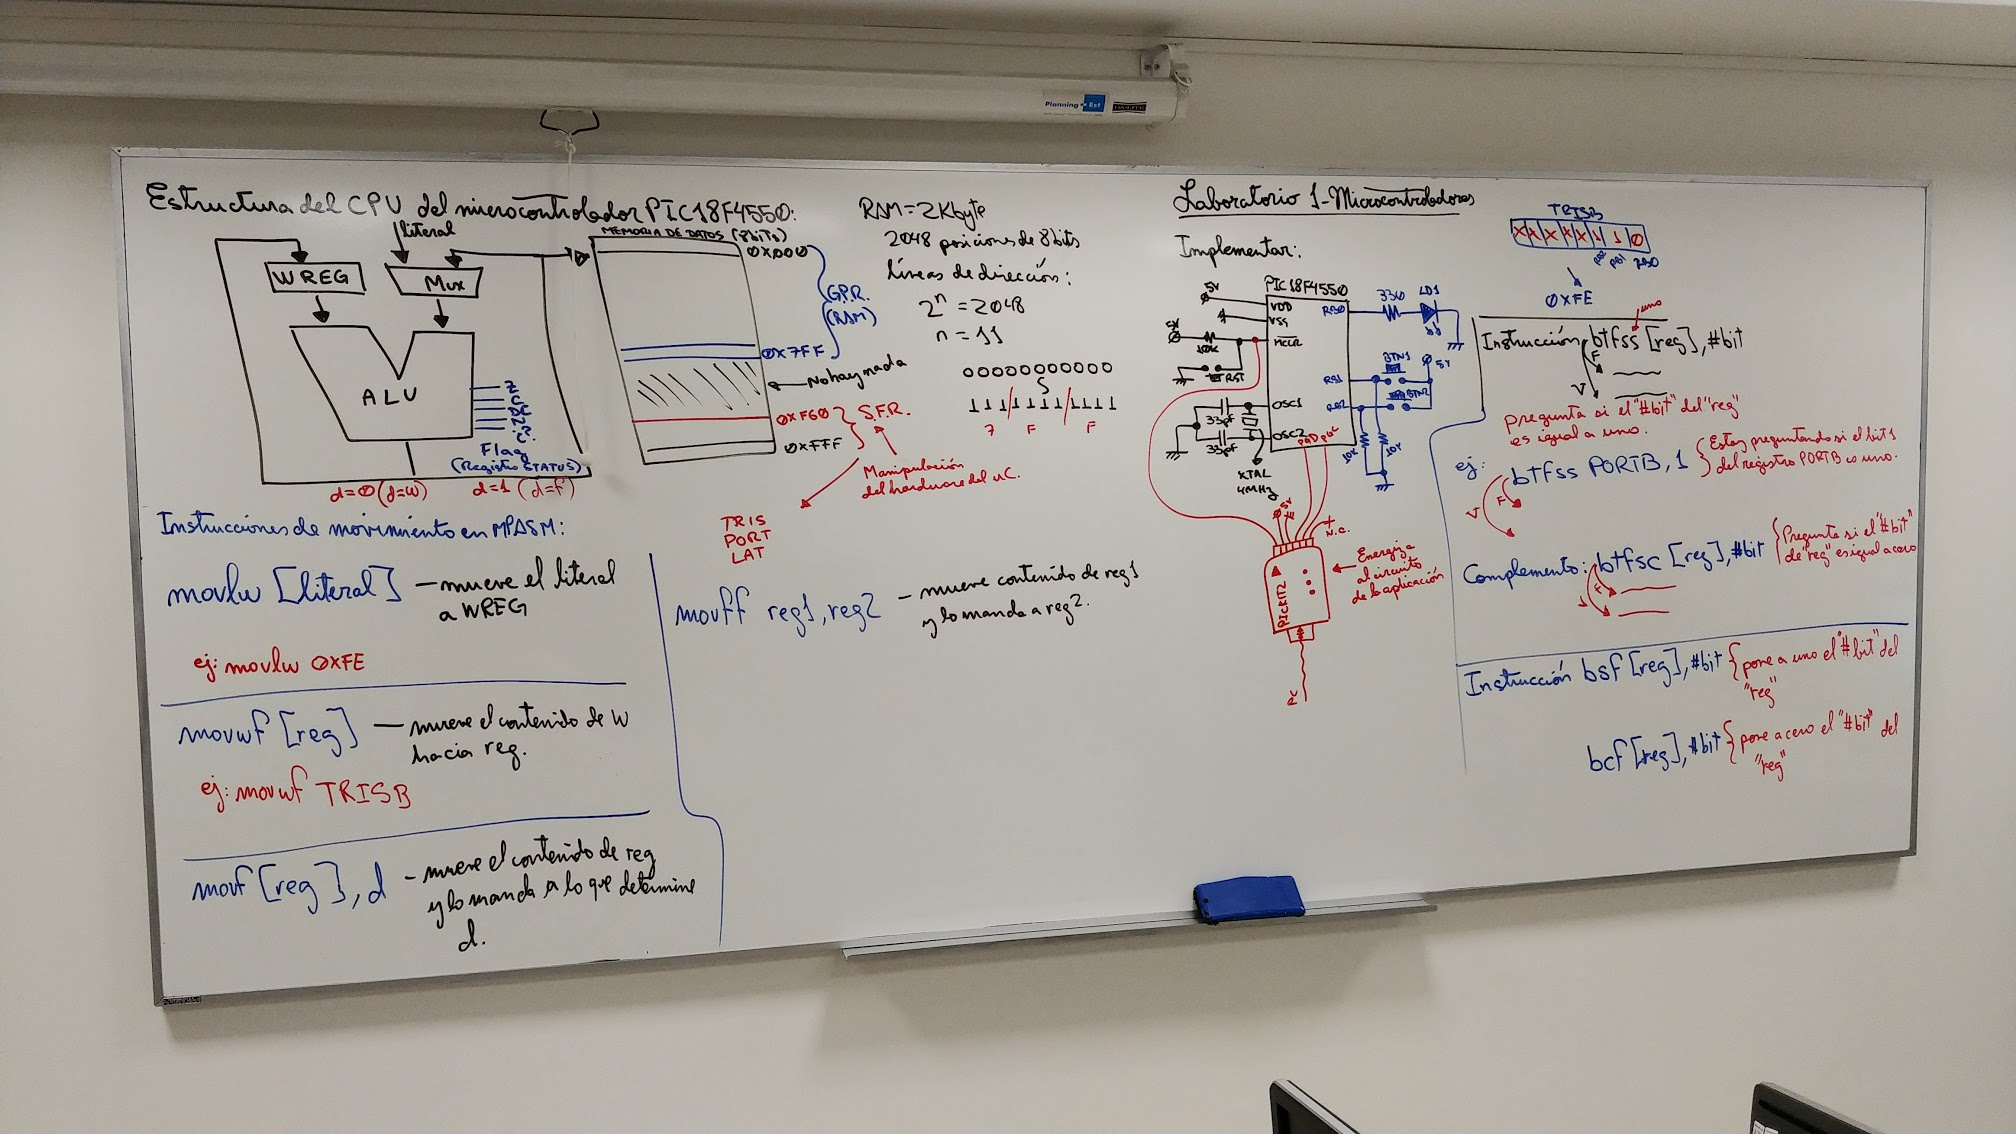 Planning Est
DA-LITE
Estructura del CPU del microcontrolador PIC18F4550:
literal
WREG
Mux
ALU
Z
C
DC
Flag
(Registro STATUS)
d=0 (d=w)
d=1 (d=f)
MEMORIA DE DATOS (8bits)
0X000
G.P.R.
(RAM)
0X7FF
No hay nada
0XF60
S.F.R.
0XFFF
Manipulación
del hardware del uC.
TRIS
PORT
LAT
RAM=2Kbyte
2048 posiciones de 8bits
líneas de dirección:
2^n = 2048
n = 11
00000000000
S
111/1111/1111
7 F F
Instrucciones de movimiento en MPASM:
movlw [literal] — mueve el literal
a WREG
ej: movlw 0XFE
movwf [reg] — mueve el contenido de W
hacia reg.
ej: movwf TRISB
movf [reg], d - mueve el contenido de reg
y lo manda a lo que determine
d.
movff reg1, reg2 - mueve contenido de reg1
y lo manda a reg2.
Laboratorio 1-Microcontroladores
Implementar:
PIC18F4550
5V
VDD
VSS
5V
10K
MCLR
RST
OSC1
33pf
OSC2
33pf
XTAL
4MHz
RB0
330
LD1
RB1
BTN1
5V
RB2
BTN2
10K
10K
PGD
PGC
5V
N.C.
PICKIT2
PC
Energiza
al circuito
de la aplicación
TRISB
XXXXX110
RB2 RB1 RB0
0XFE
uno
Instrucción btfss [reg], #bit
F
V
pregunta si el "#bit" del "reg"
es igual a uno.
ej: btfss PORTB, 1
Estoy preguntando si el bit1
del registro PORTB es uno.
F
V
Complemento: btfsc [reg], #bit
Pregunta si el "#bit"
de "reg" es igual a cero
F
V
Instrucción bsf [reg], #bit { pone a uno el "#bit" del
"reg"
bcf [reg], #bit { pone a cero el "#bit" del
"reg"